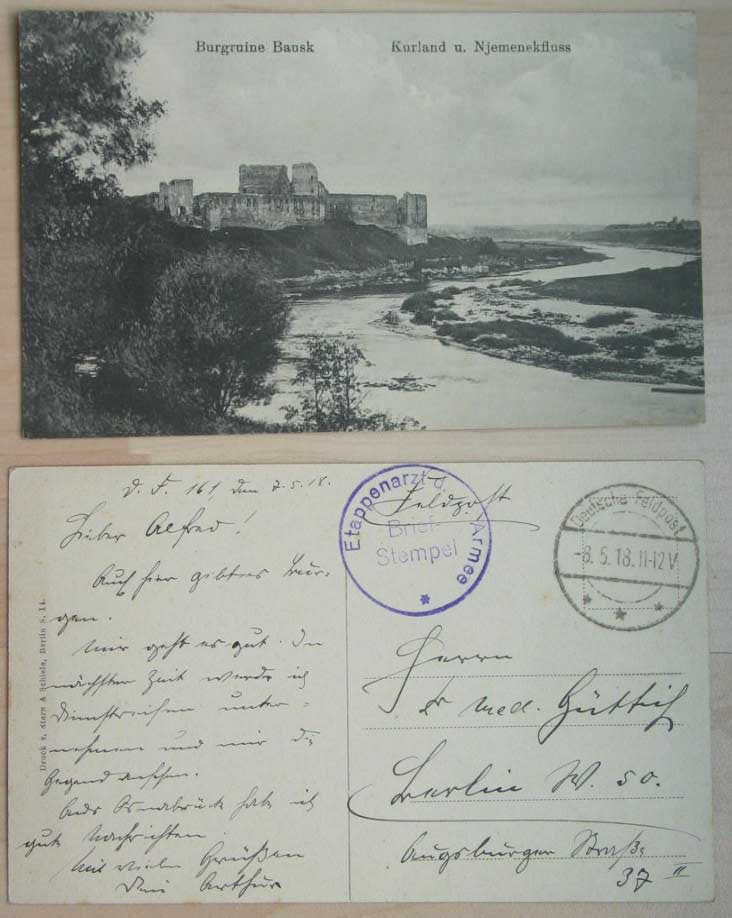 Burgruine Bausk Kurland u. Njemenekfluss
D. F. 161, den 7.5.18.
Lieber Alfred!
Auch hier gibt es Bur-
gen.
Mir geht es gut. In
nächster Zeit werde ich
Dienstreisen unter-
nehmen und mir die
Gegend ansehen.
Aus Osnabrück habe ich
gute Nachrichten.
Mit vielen Grüßen
Dein Arthur
Druck v. Stern & Schiele, Berlin S. 14.
Etappenarzt d. Armee
Brief-
Stempel
Feldpost
Deutsche Feldpost
-8.5.18.11-12V
Herrn
Dr med. Güttich
Berlin W. 50.
Augsburger Straße
37 II